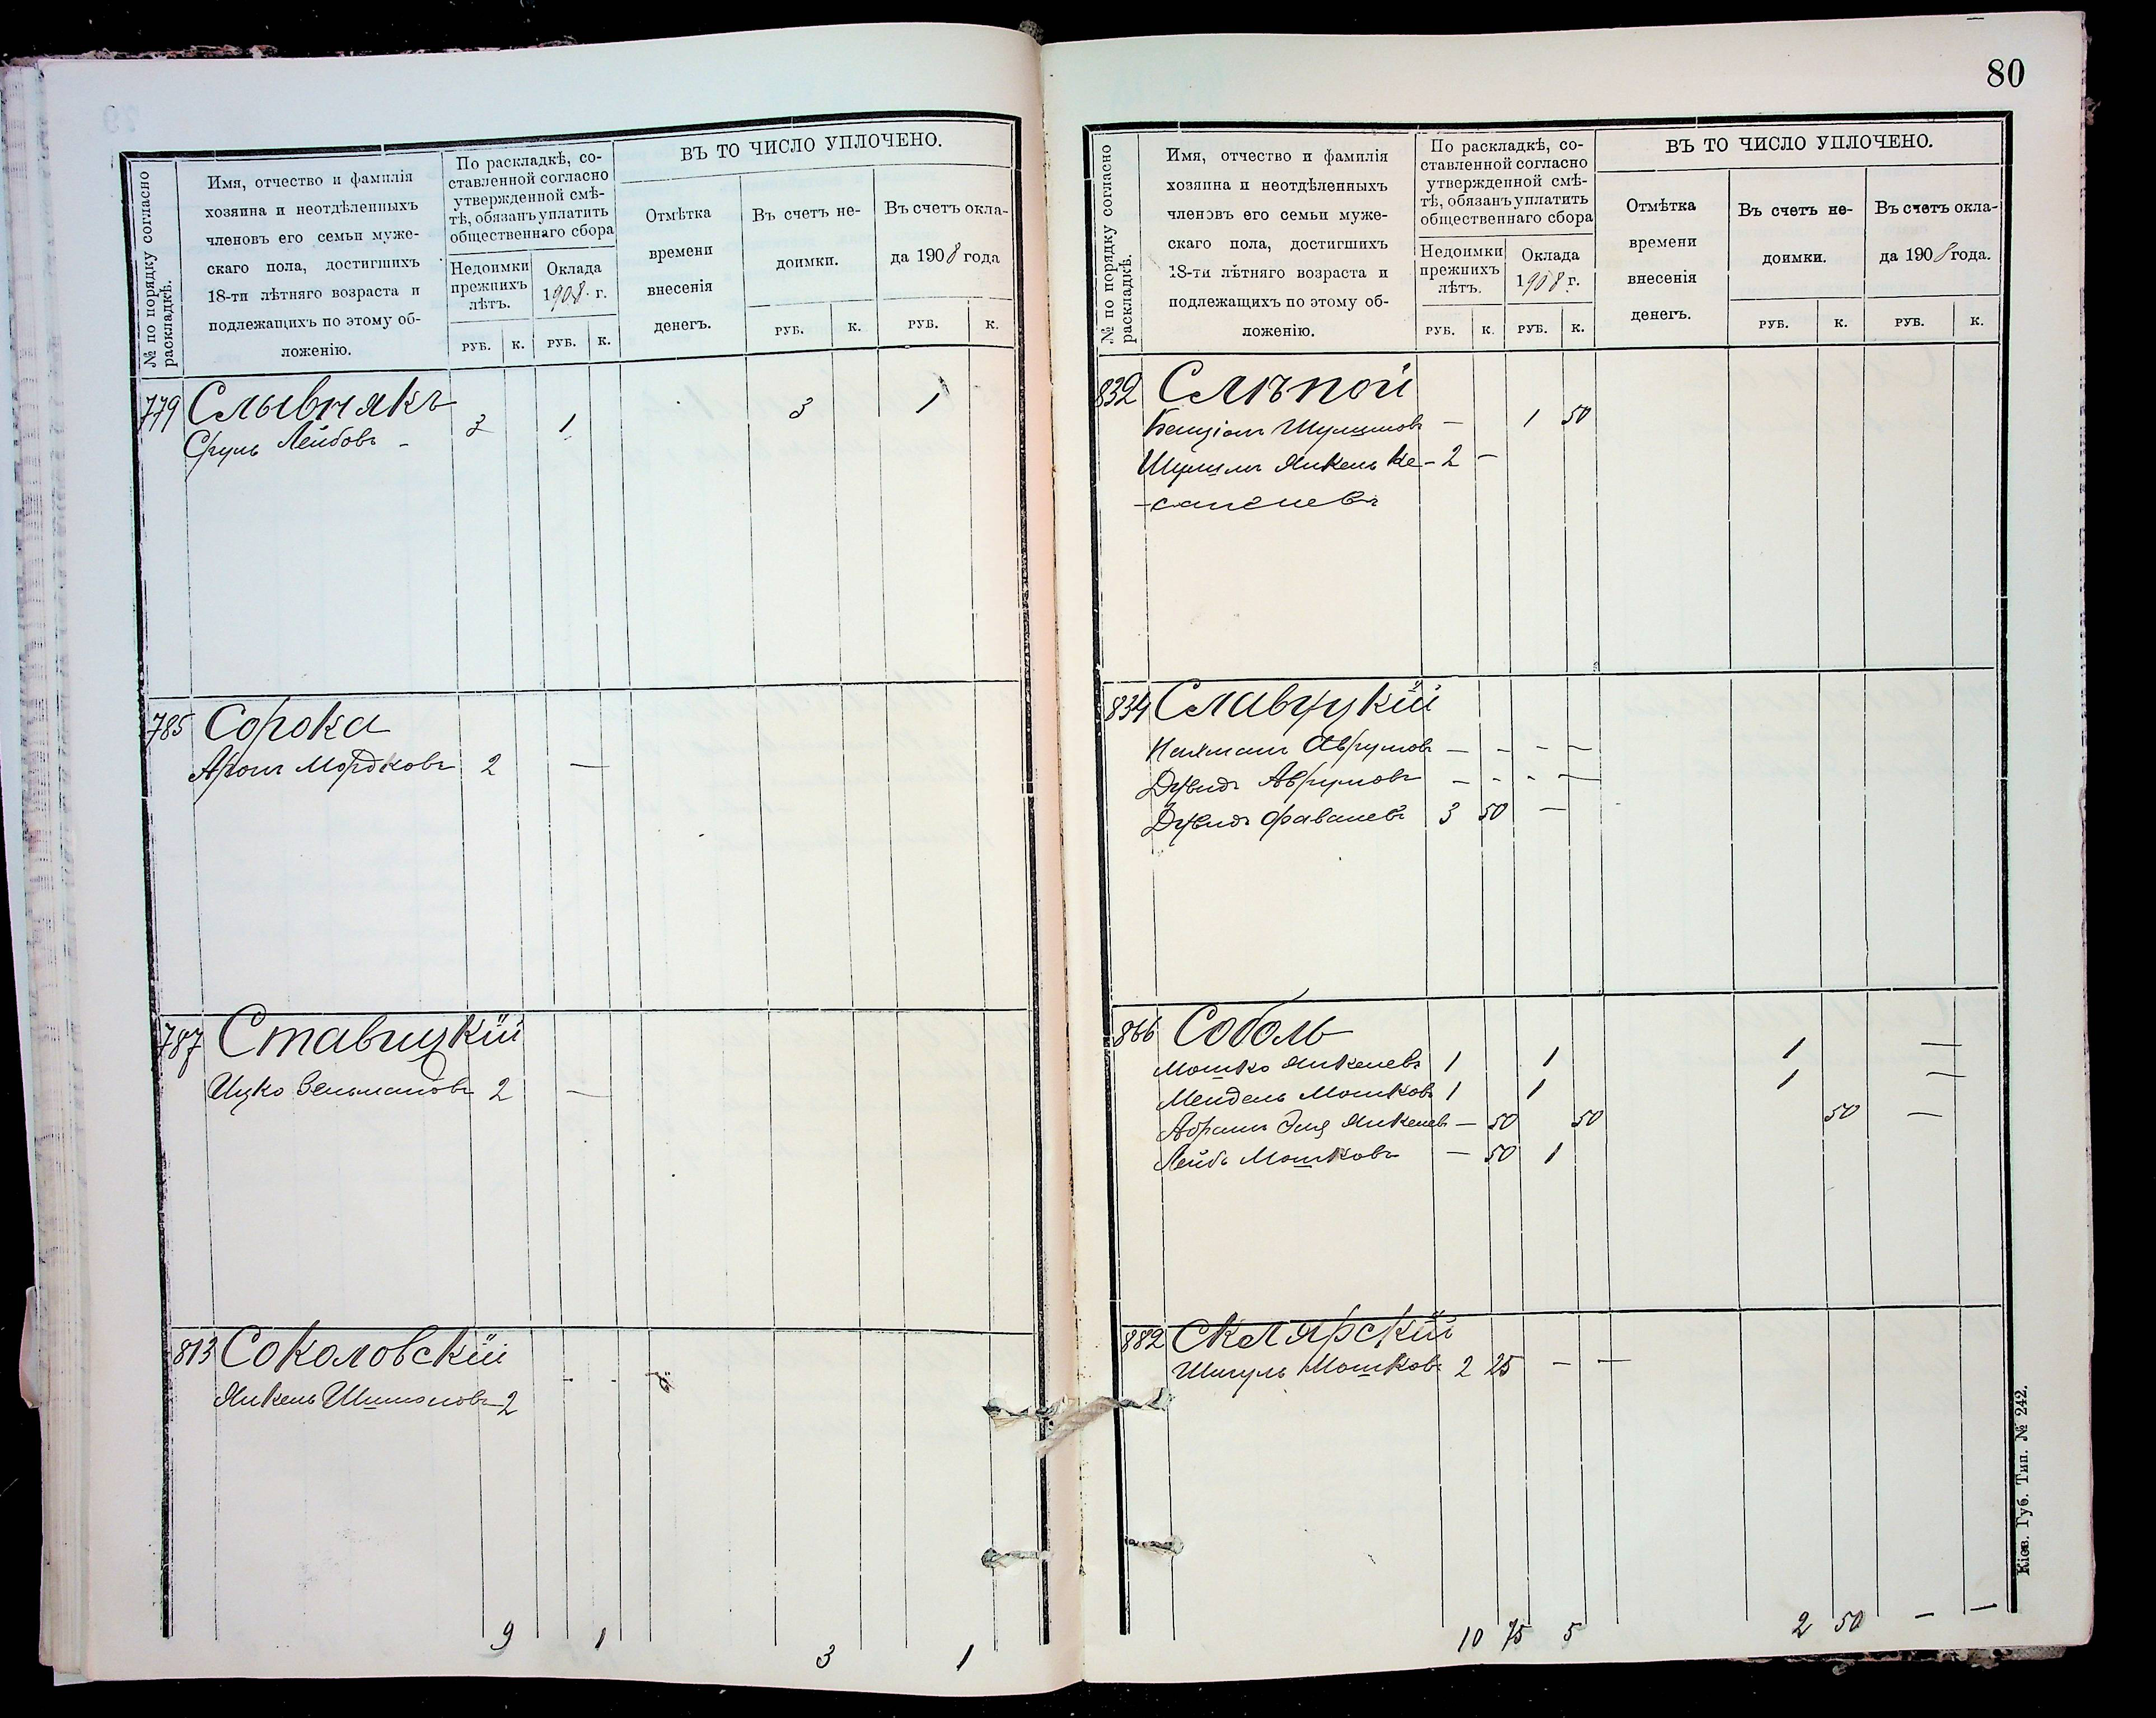 № по порядку согласно
раскладкѣ.
Имя, отчество и фамилія
хозяина и неотдѣленныхъ
членовъ его семьи муже-
скаго пола, достигшихъ
18-ти лѣтняго возраста и
подлежащихъ по этому об-
ложенію.
По раскладкѣ, со-
ставленной согласно
утвержденной смѣ-
тѣ, обязанъ уплатить
общественнаго сбора
Недоимки
прежнихъ
лѣтъ.
Оклада
1908 г.
ВЪ ТО ЧИСЛО УПЛОЧЕНО.
Отмѣтка
времени
внесенія
денегъ.
Въ счетъ не-
доимки.
Въ счетъ окла-
да 1908 года
РУБ. К. РУБ. К. РУБ. К. РУБ. К.
779 Слывнякъ
Сруль Лейбовъ - 3 1 3 1
785 Сорока
Аронъ Мордковъ 2 —
787 Ставицкій
Ицко Зельмановъ 2 —
813 Соколовскій
Янкель Шимоновъ 2 - - -
9 1 3 1
80
№ по порядку согласно
раскладкѣ.
Имя, отчество и фамилія
хозяина и неотдѣленныхъ
членовъ его семьи муже-
скаго пола, достигшихъ
18-ти лѣтняго возраста и
подлежащихъ по этому об-
ложенію.
По раскладкѣ, со-
ставленной согласно
утвержденной смѣ-
тѣ, обязанъ уплатить
общественнаго сбора
Недоимки
прежнихъ
лѣтъ.
Оклада
1908 г.
ВЪ ТО ЧИСЛО УПЛОЧЕНО.
Отмѣтка
времени
внесенія
денегъ.
Въ счетъ не-
доимки.
Въ счетъ окла-
да 1908 года.
РУБ. К. РУБ. К. РУБ. К. РУБ. К.
832 Слѣпой
Бенціонъ Шулимовъ — 1 50
Шулимъ Янкель Ке- 2 —
834 Славуцкій
Нахманъ Аврумовъ — - - —
Дувидъ Аврумовъ — - - —
Дувидъ 3 50 —
866 Соболь
Мошко Янкелевъ 1 1 1 —
Мендель Мошковъ 1 1 1 —
Абрамъ Эля Янкелевъ — 50 50 50 —
Лейбъ Мошковъ — 50 1
882 Склярскій
Шмуль Мошковъ 2 25 — —
10 75 5 2 50 — —
Кіев. Губ. Тип. № 242.